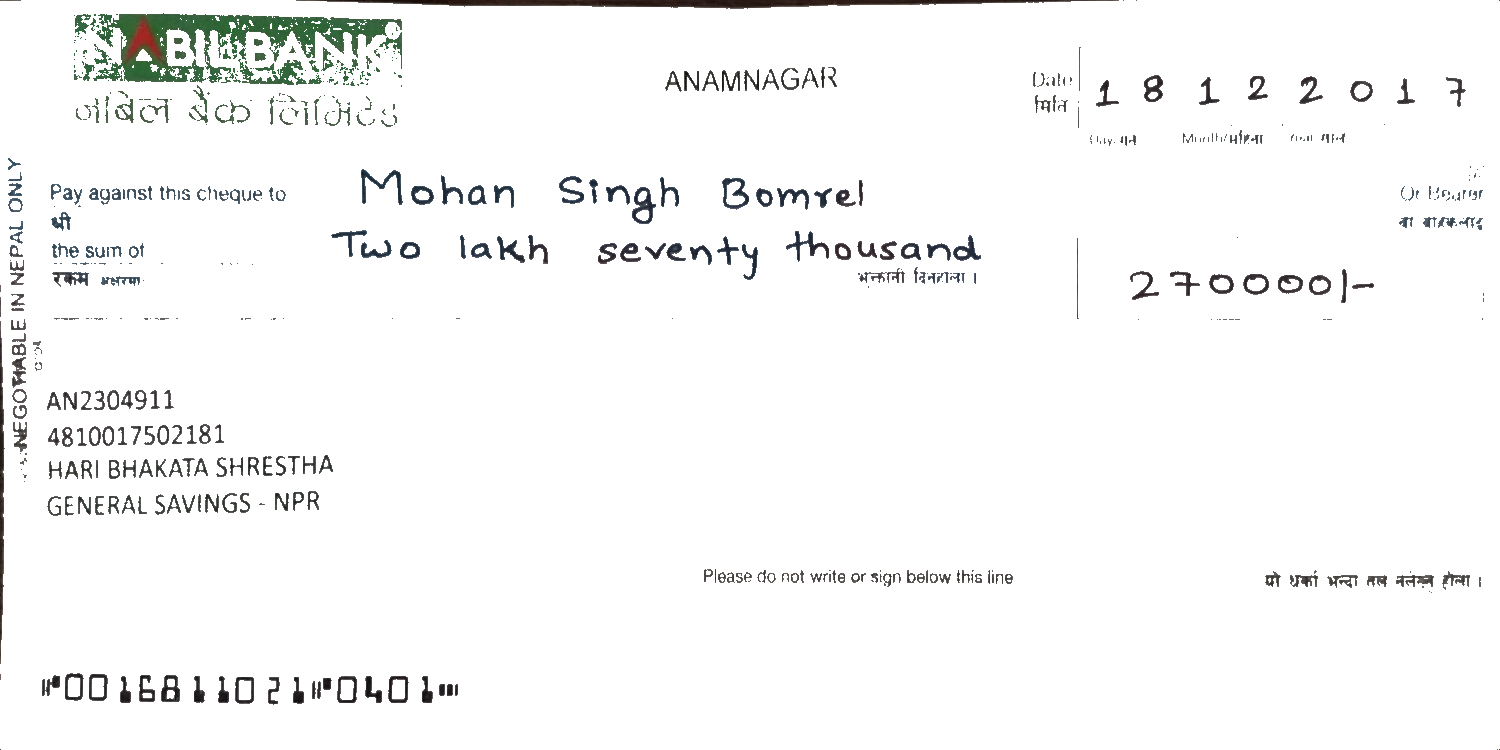 NABIL BANK
नबिल बैंक लिमिटेड
ANAMNAGAR
Date 1 8 1 2 2 0 1 7
मिति
Day/गते Month/महिना Year/साल
NEGOTIABLE IN NEPAL ONLY
Pay against this cheque to Mohan Singh Bomrel Or Bearer
श्री वा वाहकलाई
the sum of Two lakh seventy thousand
रकम अक्षरमा भुक्तानी दिनुहोला ।
270000/-
AN2304911
4810017502181
HARI BHAKATA SHRESTHA
GENERAL SAVINGS - NPR
Please do not write or sign below this line यो धर्का भन्दा तल नलेख्नु होला ।
⑈0016811021⑈0401⑈